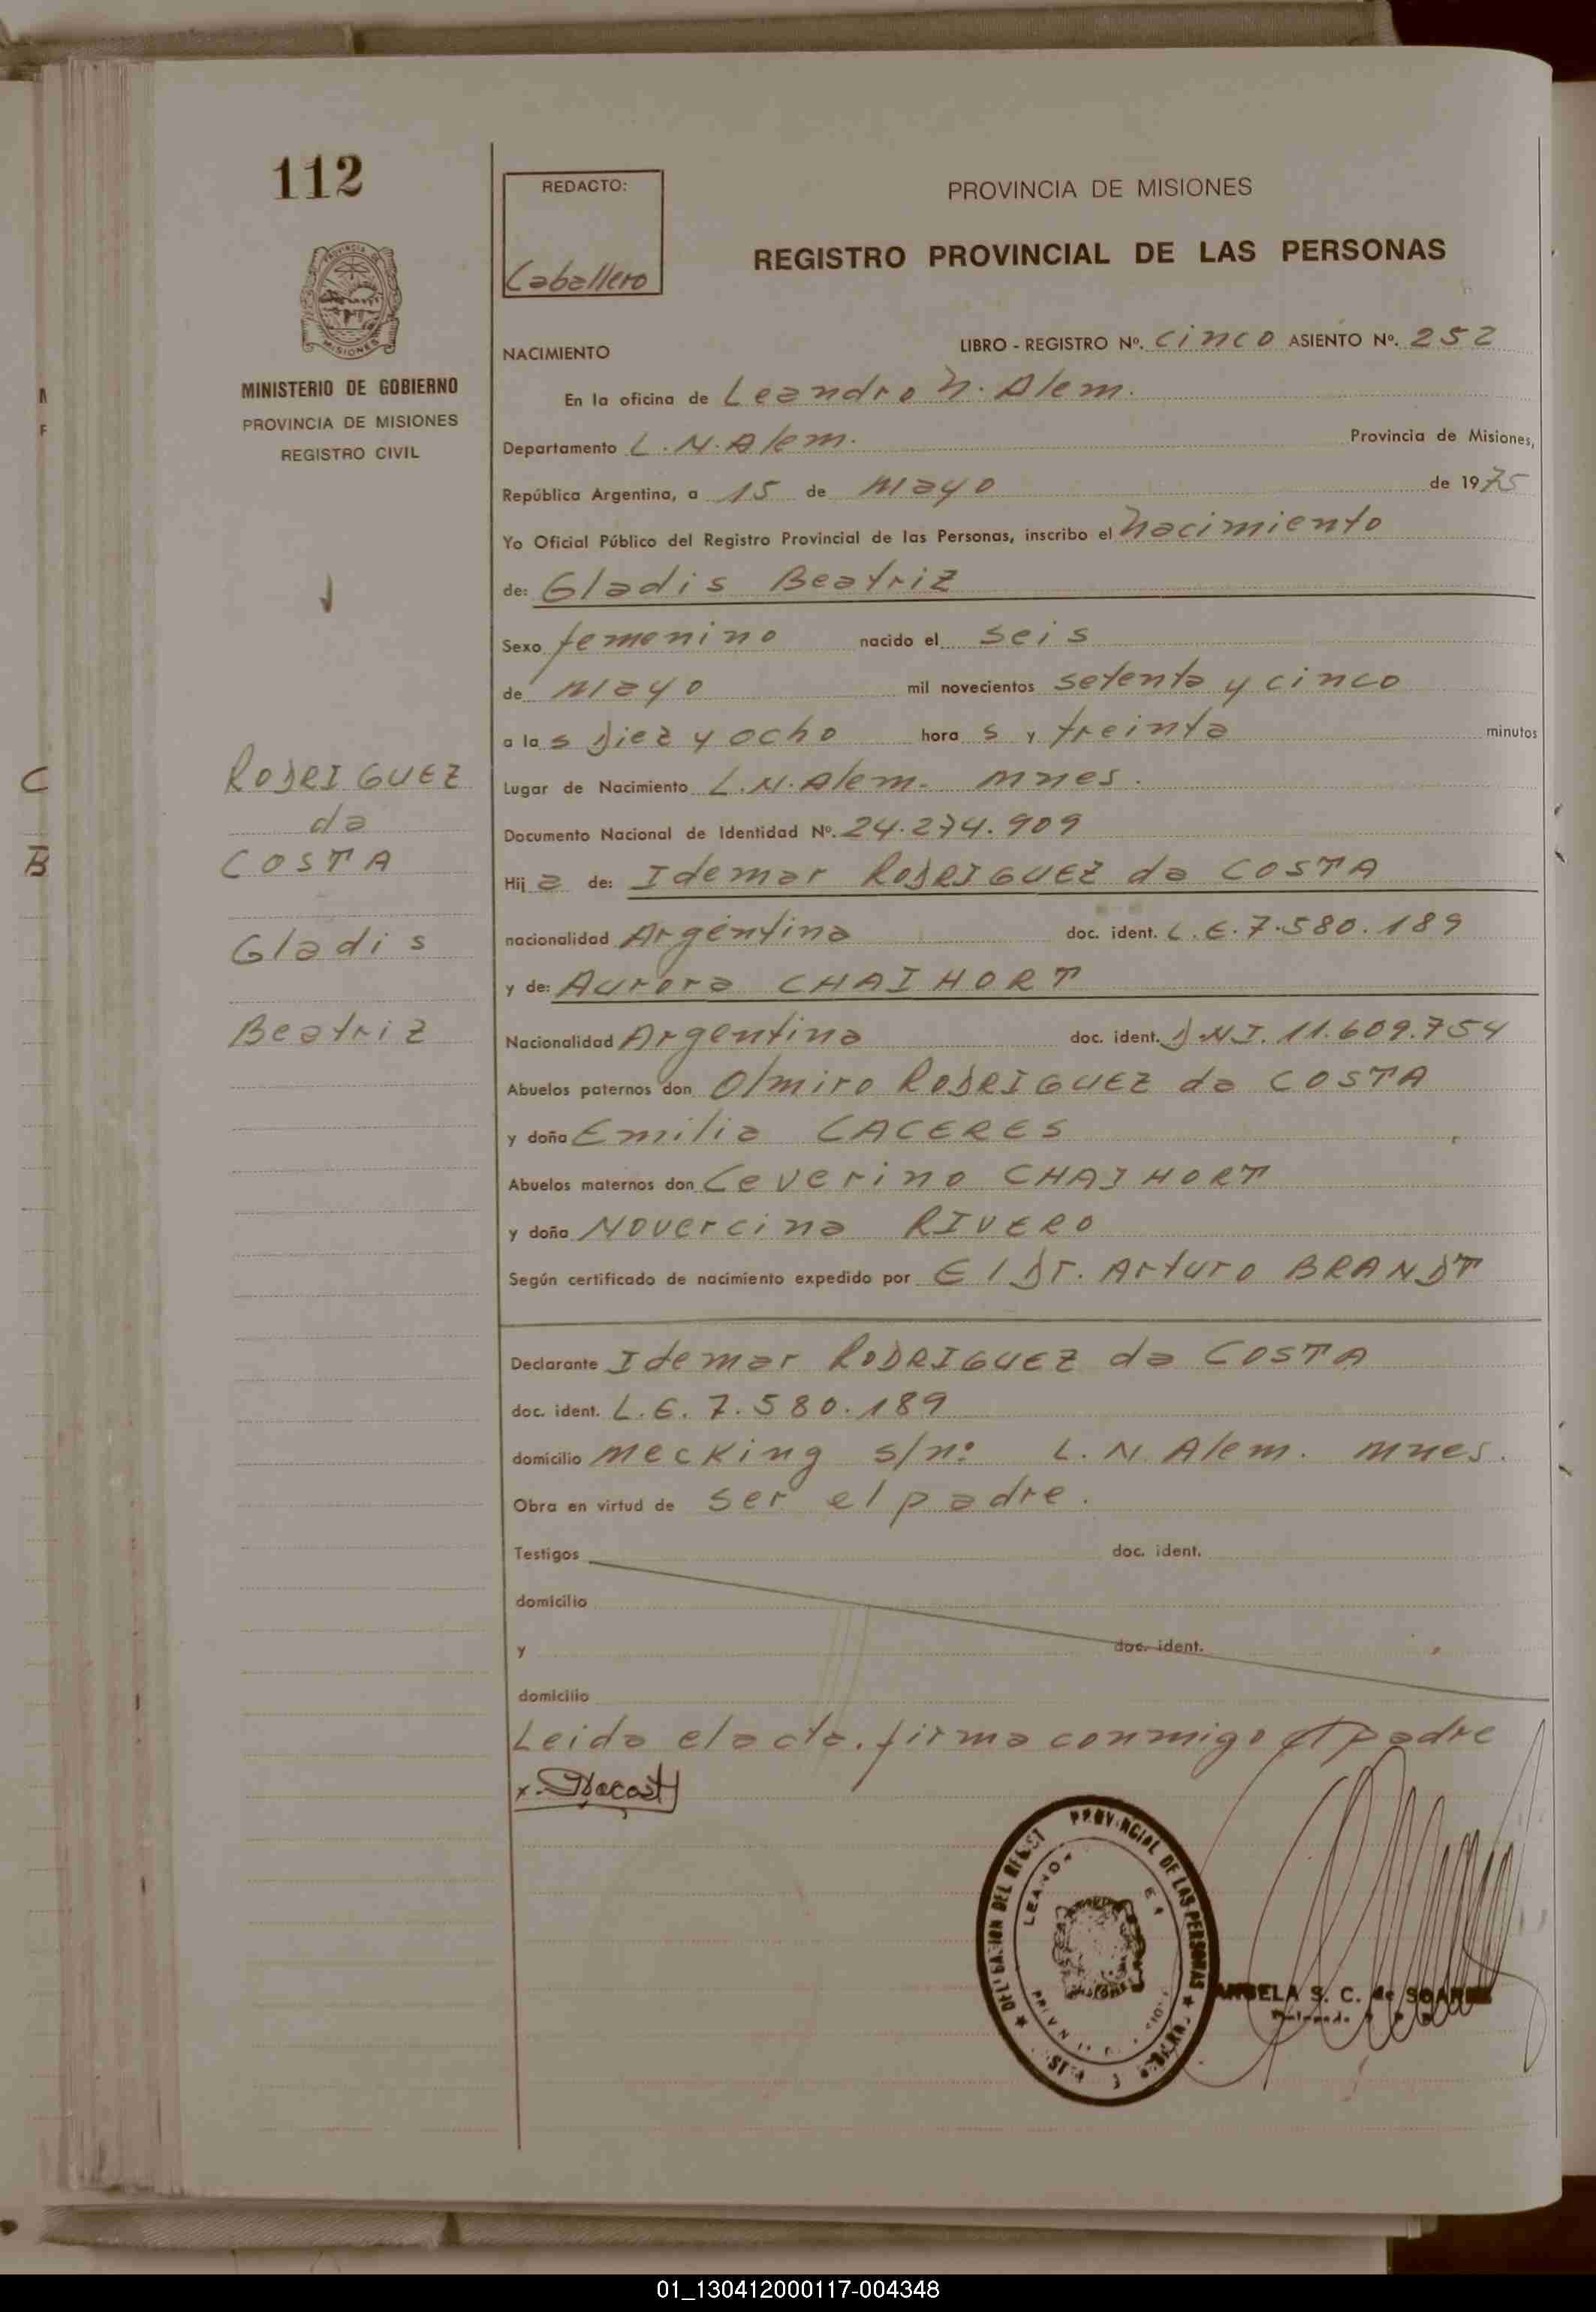 112
PROVINCIA DE
MISIONES
MINISTERIO DE GOBIERNO
PROVINCIA DE MISIONES
REGISTRO CIVIL
RODRIGUEZ
da
COSTA
Gladis
Beatriz
REDACTO:
Caballero
PROVINCIA DE MISIONES
REGISTRO PROVINCIAL DE LAS PERSONAS
NACIMIENTO
LIBRO - REGISTRO Nº. cinco ASIENTO Nº. 252
En la oficina de Leandro N. Alem.
Departamento L.N.Alem. Provincia de Misiones,
República Argentina, a 15 de mayo de 1975
Yo Oficial Público del Registro Provincial de las Personas, inscribo el nacimiento
de: Gladis Beatriz
Sexo femenino nacido el seis
de mayo mil novecientos setenta y cinco
a las Diez y ocho horas y treinta minutos
Lugar de Nacimiento L.N.Alem. Mnes.
Documento Nacional de Identidad Nº. 24.274.909
Hija de: Idemar RODRIGUEZ da COSTA
nacionalidad Argentina doc. ident. L.E.7.580.189
y de: Aurora CHAIHORT
Nacionalidad Argentina doc. ident. D.N.I. 11.609.754
Abuelos paternos don Olmiro RODRIGUEZ da COSTA
y doña Emilia CACERES
Abuelos maternos don Ceverino CHAIHORT
y doña Novercina RIVERO
Según certificado de nacimiento expedido por El Dr. Arturo BRANDT
Declarante Idemar RODRIGUEZ da COSTA
doc. ident. L.E. 7.580.189
domicilio Mecking s/nº L.N.Alem. Mnes.
Obra en virtud de ser el padre.
Testigos doc. ident.
domicilio
y doc. ident.
domicilio
Leida el acta, firma conmigo el padre
PROVINCIAL DE LAS PERSONAS
S. C. de
01_130412000117-004348